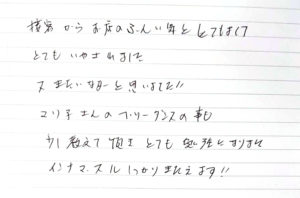 接客からお店のふんい気としてもよくて
とてもいやされました
又きたいなーと思いました!!
エリ子さんのフリーダンスの事も
少し教えて頂きとても勉強になりました
インナーマッスルしっかりきたえます!!